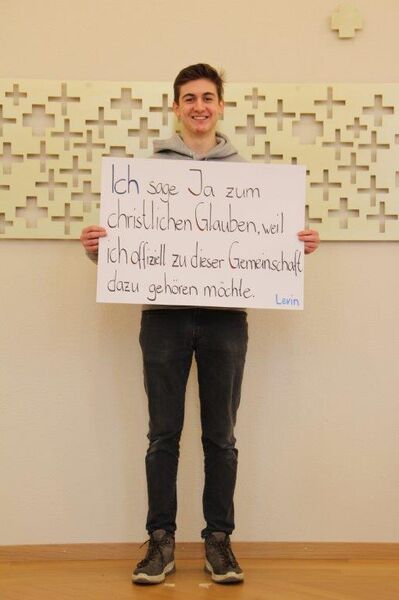 Ich sage Ja zum
christlichen Glauben, weil
ich offiziell zu dieser Gemeinschaft
dazu gehören möchte.
Levin